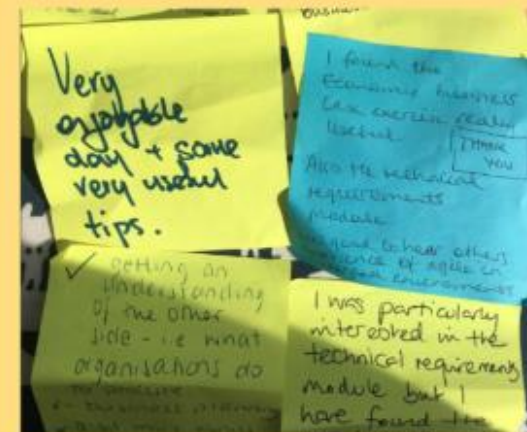 Very
enjoyable
day + some
very useful
tips.
I found the
Economic business
case exercise really
useful
THANK
YOU
Also the technical
requirements
module
good to hear others
experience of agile in
environments
✓ getting an
understanding
of the other
side - i.e what
organisations do
I was particularly
interested in the
technical requirements
module but I
have found the